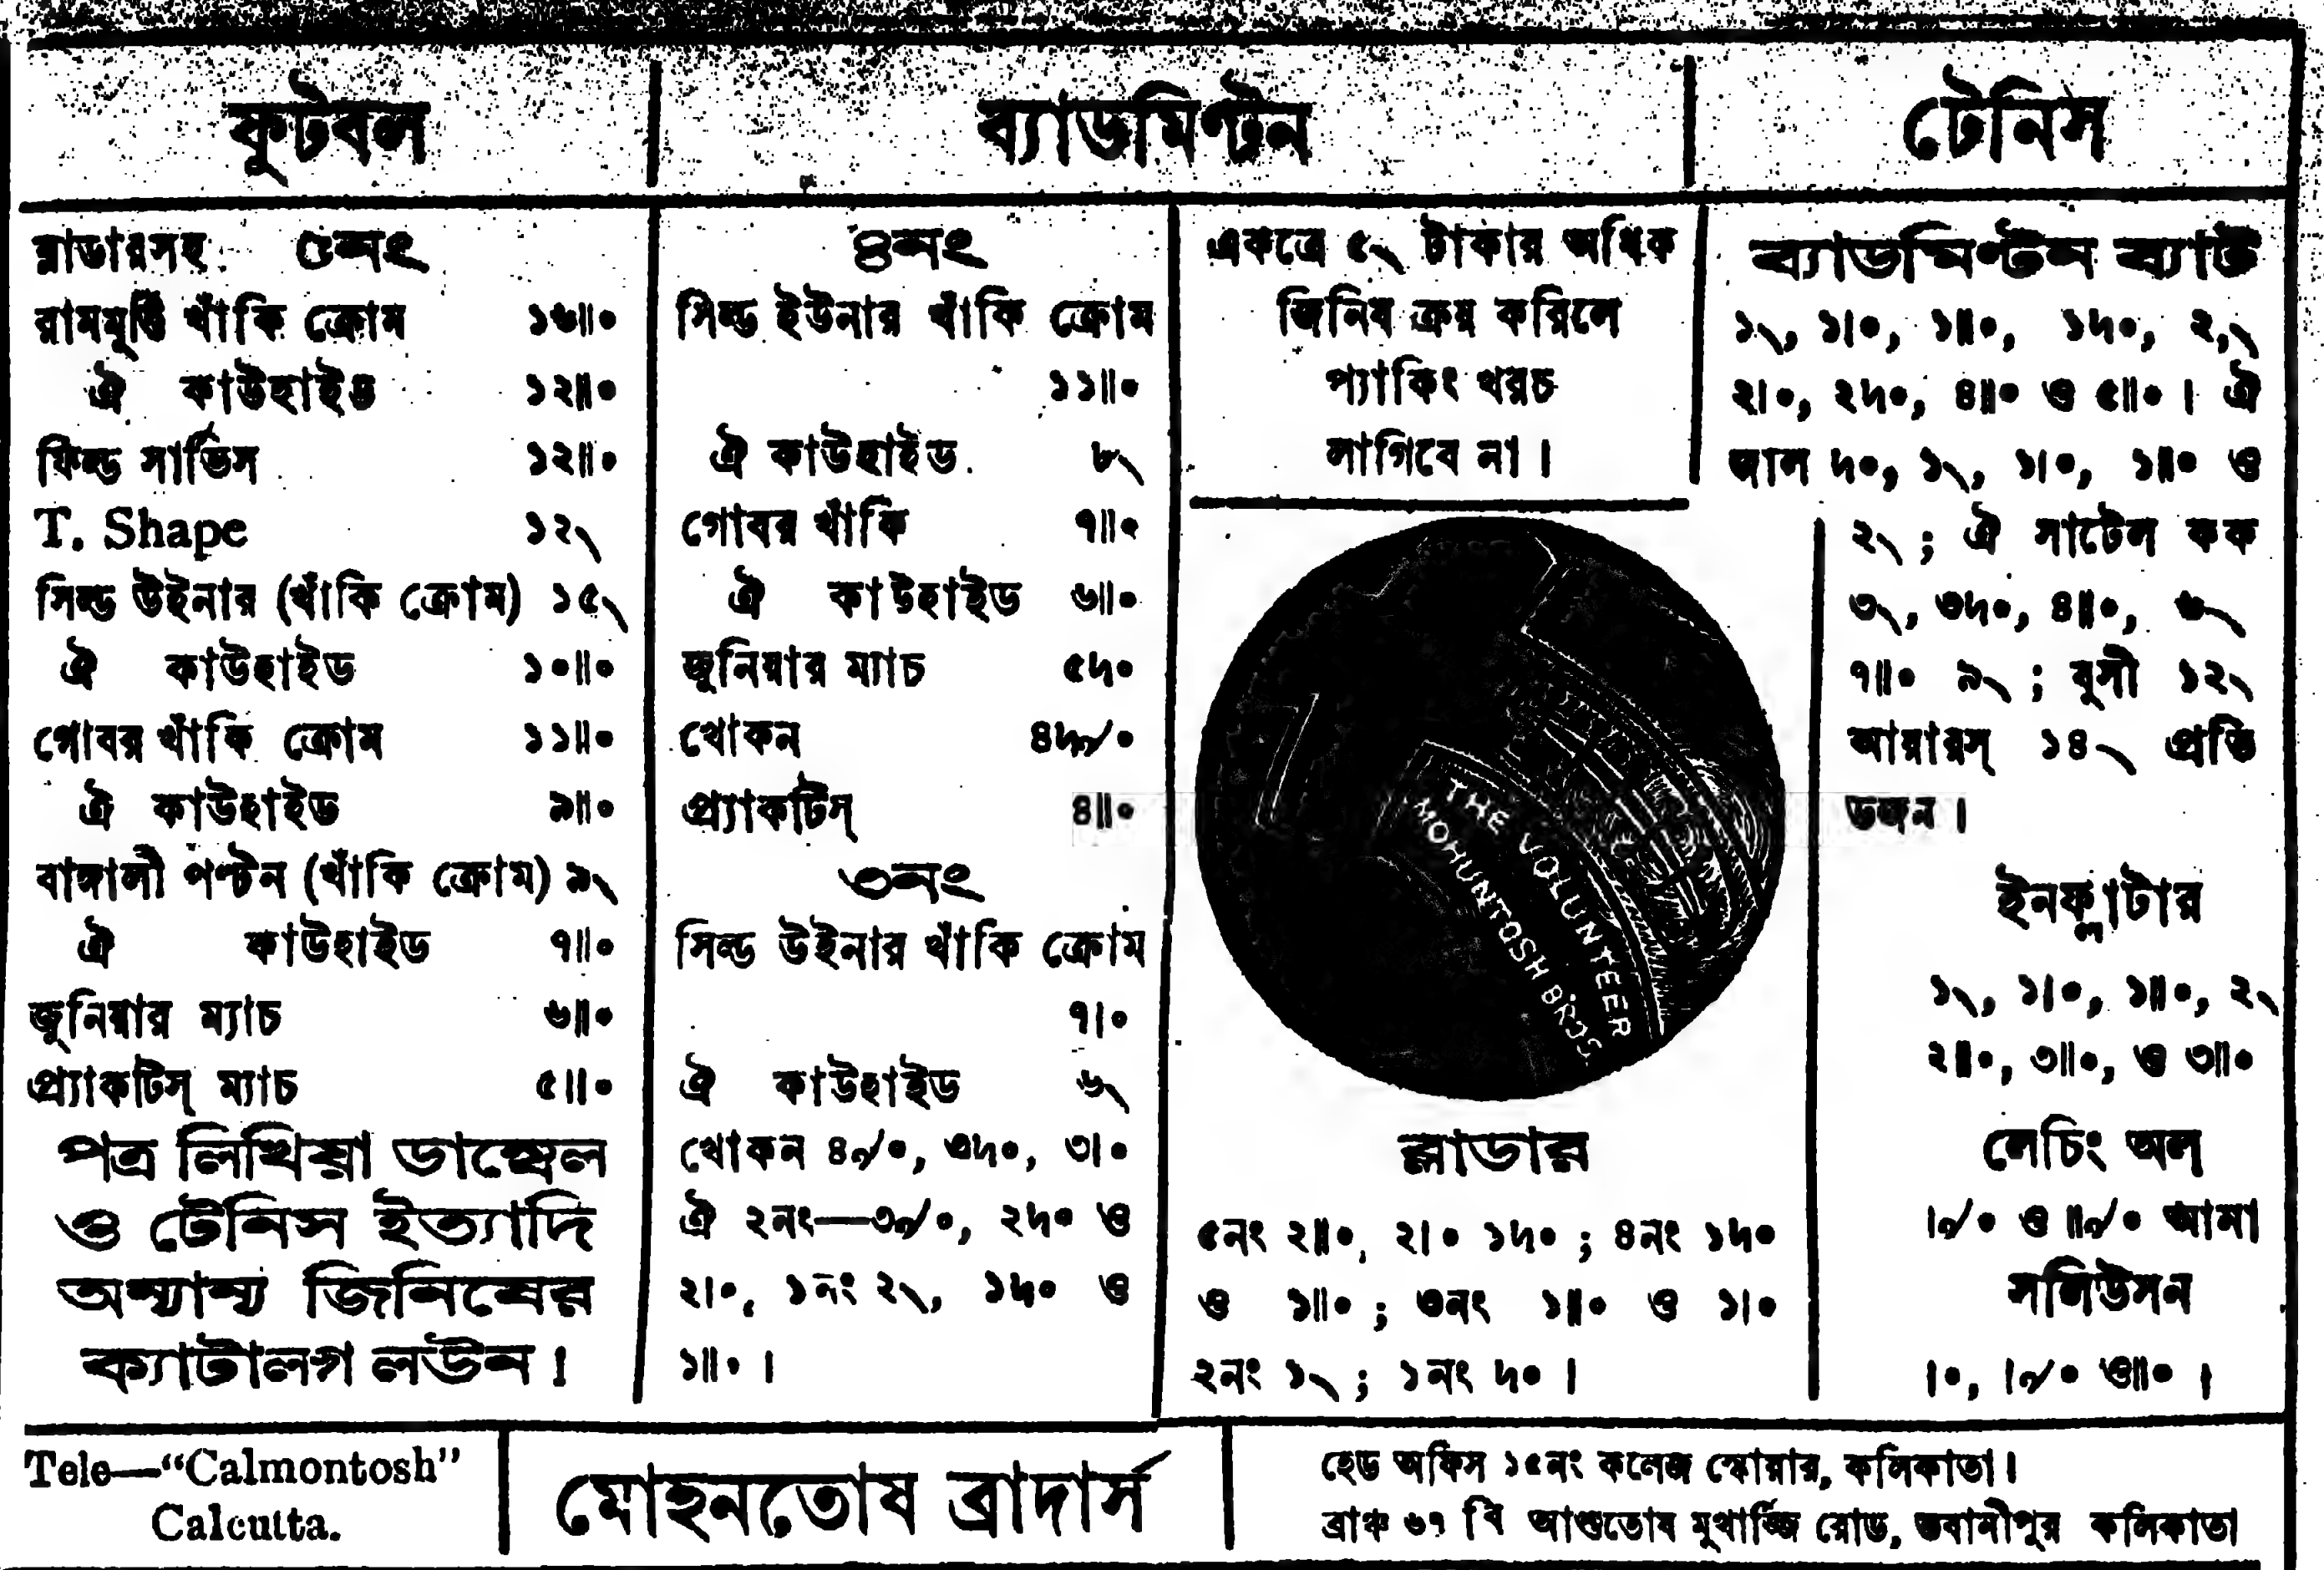 ফুটবল
ব্যাডমিণ্টন
টেনিস
ব্লাডারসহ ৫নং
রামমূর্ত্তি খাঁকি ক্রোম ১৬॥০
ঐ কাউহাইড ১২॥০
ফিল্ড সার্ভিস ১২॥০
T. Shape ১২৲
সিল্ড উইনার (খাঁকি ক্রোম) ১৫৲
ঐ কাউহাইড ১০॥০
গোবর খাঁকি ক্রোম ১১॥০
ঐ কাউহাইড ৯॥০
বাঙ্গালী পণ্টন (খাঁকি ক্রোম) ৯৲
ঐ কাউহাইড ৭॥০
জুনিয়ার ম্যাচ ৬॥০
প্র্যাকটিস্ ম্যাচ ৫॥০
পত্র লিখিয়া ডাম্বেল
ও টেনিস ইত্যাদি
অন্যান্য জিনিষের
ক্যাটালগ লউন।
৪নং
সিল্ড ইউনার খাঁকি ক্রোম
১১॥০
ঐ কাউহাইড ৮৲
গোবর খাঁকি ৭॥০
ঐ কাউহাইড ৬॥০
জুনিয়ার ম্যাচ ৫৸০
খোকন ৪৸৵০
প্র্যাকটিস্ ৪॥০
৩নং
সিল্ড উইনার খাঁকি ক্রোম
৭।০
ঐ কাউহাইড ৬৲
খোকন ৪৵০, ৩৸০, ৩।০
ঐ ২নং—৩৵০, ২৸০ ও
২।০, ১নং ২৲, ১৸০ ও
১॥০।
একত্রে ৫৲ টাকার অধিক
জিনিষ ক্রয় করিলে
প্যাকিং খরচ
লাগিবে না।
THE VOLUNTEER
MOHUNTOSH BROS.
ব্লাডার
৫নং ২॥০, ২।০ ১৸০ ; ৪নং ১৸০
ও ১॥০ ; ৩নং ১॥০ ও ১।০
২নং ১৲ ; ১নং ৸০।
ব্যাডমিণ্টন ব্যাট
১৲, ১।০, ১॥০, ১৸০, ২,৲
২।০, ২৸০, ৪॥০ ও ৫॥০। ঐ
জাল ৸০, ১৲, ১।০, ১॥০ ও
২৲ ; ঐ সাটেল কক
৩৲, ৩৸০, ৪॥০, ৬৲
৭॥০ ৯৲ ; বুসী ১২৲
আয়ারস্ ১৪৲ প্রতি
ডজন।
ইনফ্লাটার
১৲, ১।০, ১॥০, ২৲
২॥০, ৩॥০, ও ৩॥০
লেচিং অল
।৵০ ও ॥৵০ আনা
সলিউসন
।০, ।৵০ ও॥০।
Tele—"Calmontosh"
Calcutta.
মোহনতোষ ব্রাদার্স
হেড অফিস ১৫নং কলেজ স্কোয়ার, কলিকাতা।
ব্রাঞ্চ ৬৭ বি আশুতোষ মুখার্জ্জি রোড, ভবানীপুর কলিকাতা